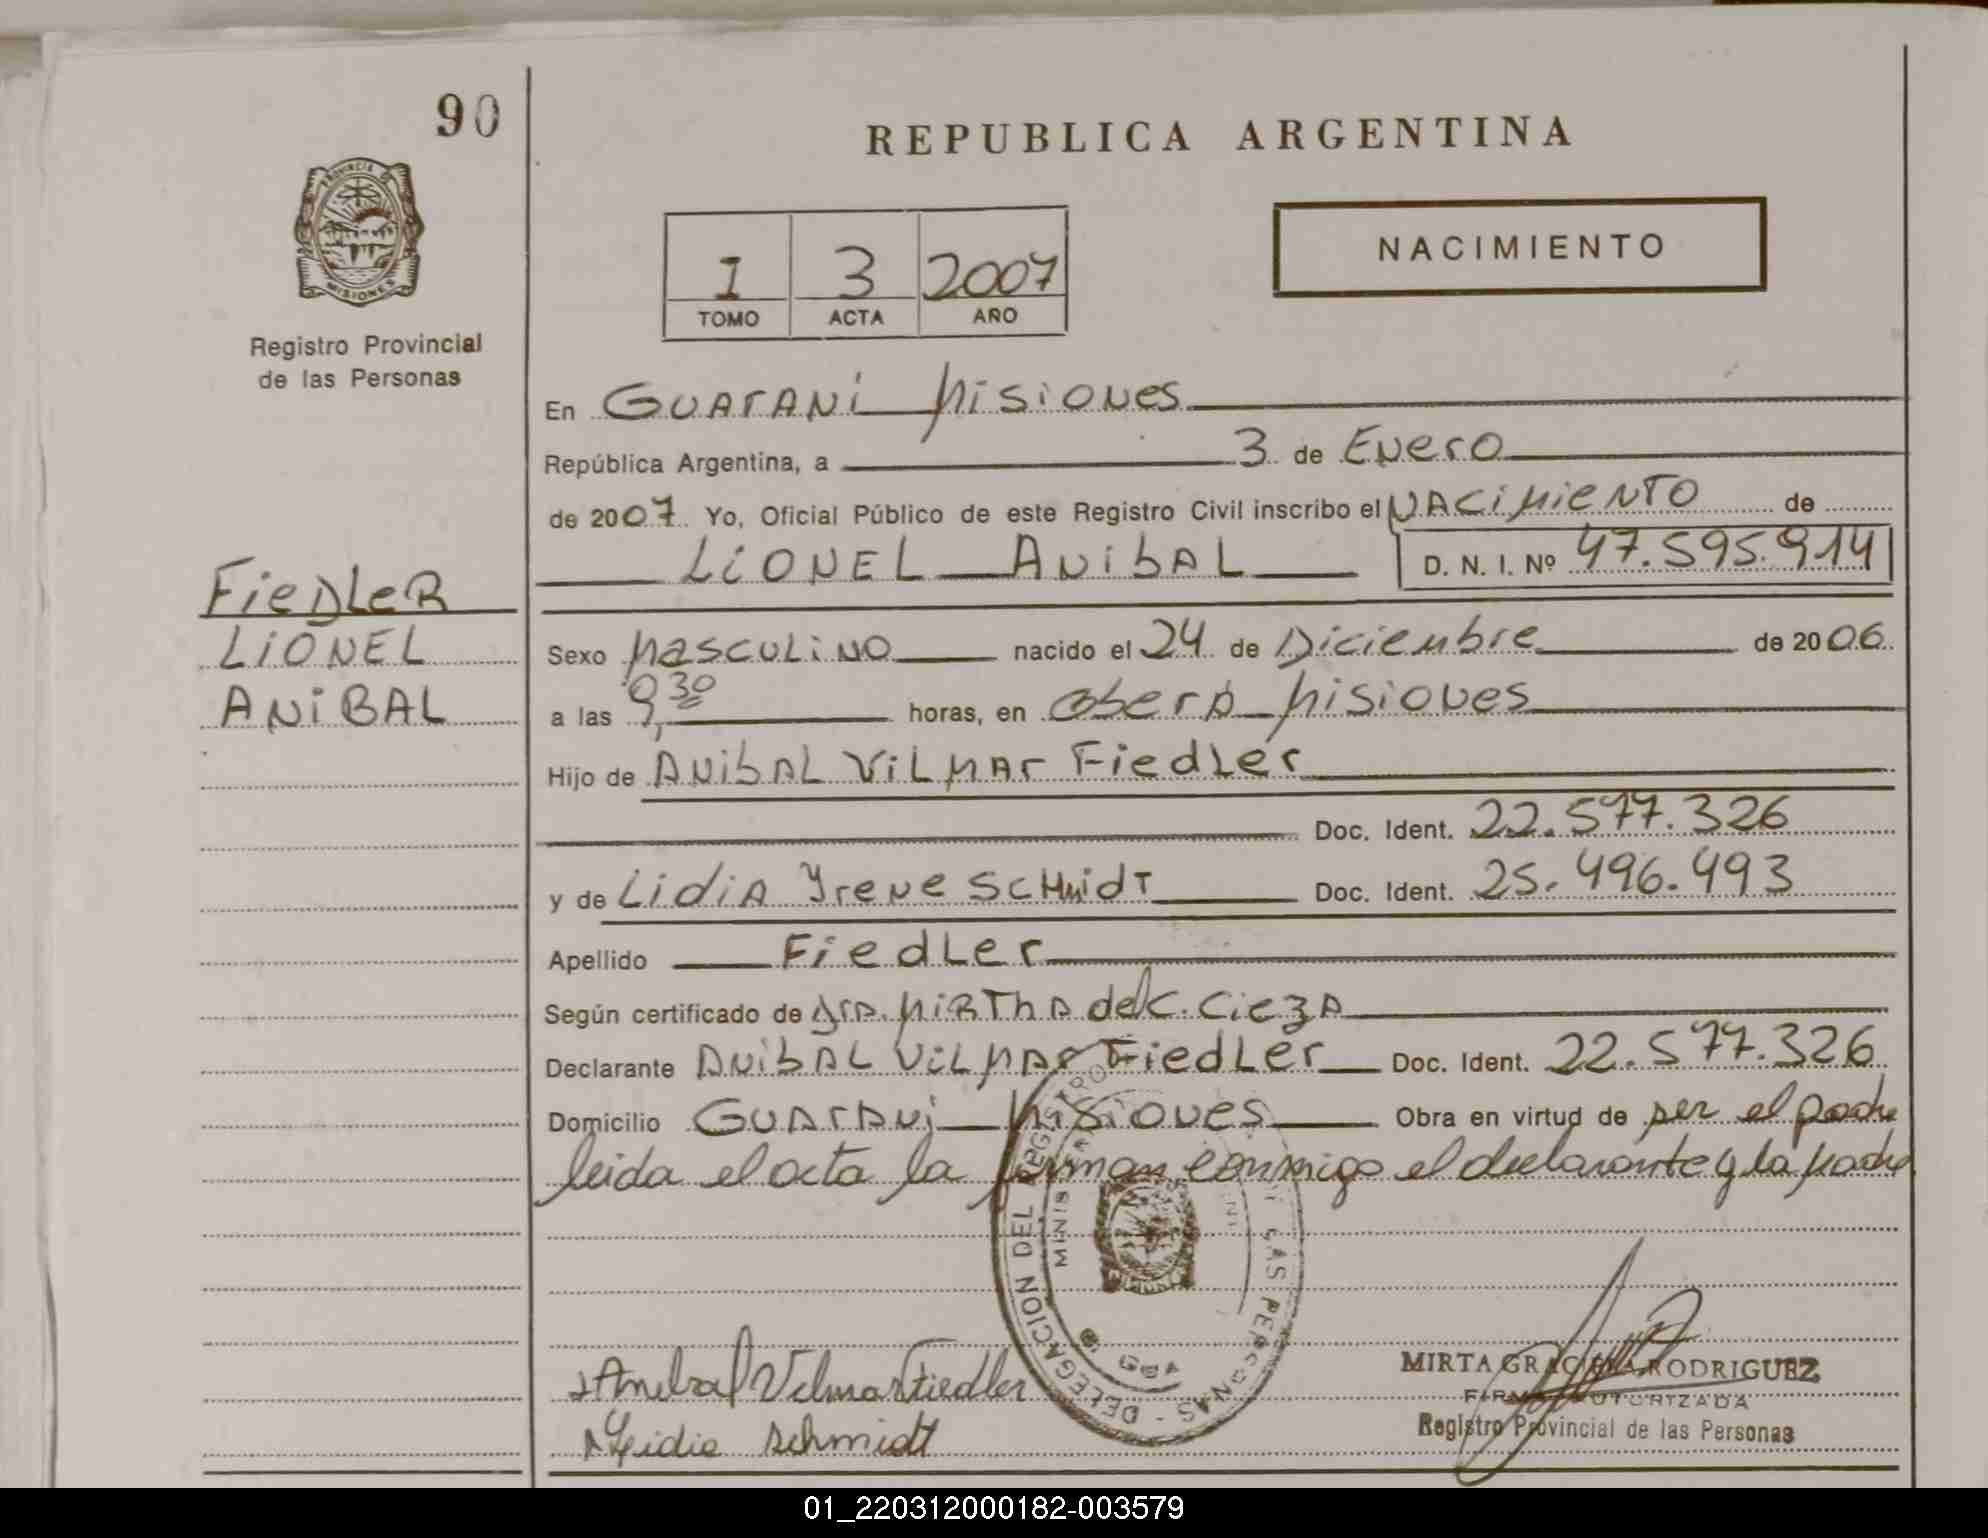 90
PROVINCIA DE
MISIONES
Registro Provincial
de las Personas
FieDLeR
LiONEL
ANiBAL
REPUBLICA ARGENTINA
1 3 2007
TOMO ACTA AÑO
NACIMIENTO
En GUArANi Misiones
República Argentina, a 3 de Enero
de 2007 Yo, Oficial Público de este Registro Civil inscribo el NACiMieNTO de
LiONEL ANibAL D. N. I. Nº 47.595.914
Sexo MasCULiNO nacido el 24 de Diciembre de 2006
a las 9,30 horas, en Oberá Misiones
Hijo de ANibAL ViLMAr FiedLer
Doc. Ident. 22.577.326
y de LidiA Yrene SCHmidT Doc. Ident. 25.496.493
Apellido FiedLer
Según certificado de Dra. MiRThA del C. CiezA
Declarante ANibAL ViLMAr FiedLer Doc. Ident. 22.577.326
Domicilio GUArANi Misiones Obra en virtud de ser el padre
leida el acta la firman conmigo el declarante y la madre
DELEGACION DEL REGISTRO LAS PERSONAS
MINIS
Anibal Vilmar Fiedler
Lidia Schmidt
MIRTA GRACIELA RODRIGUEZ
FIRMA AUTORIZADA
Registro Provincial de las Personas
01_220312000182-003579